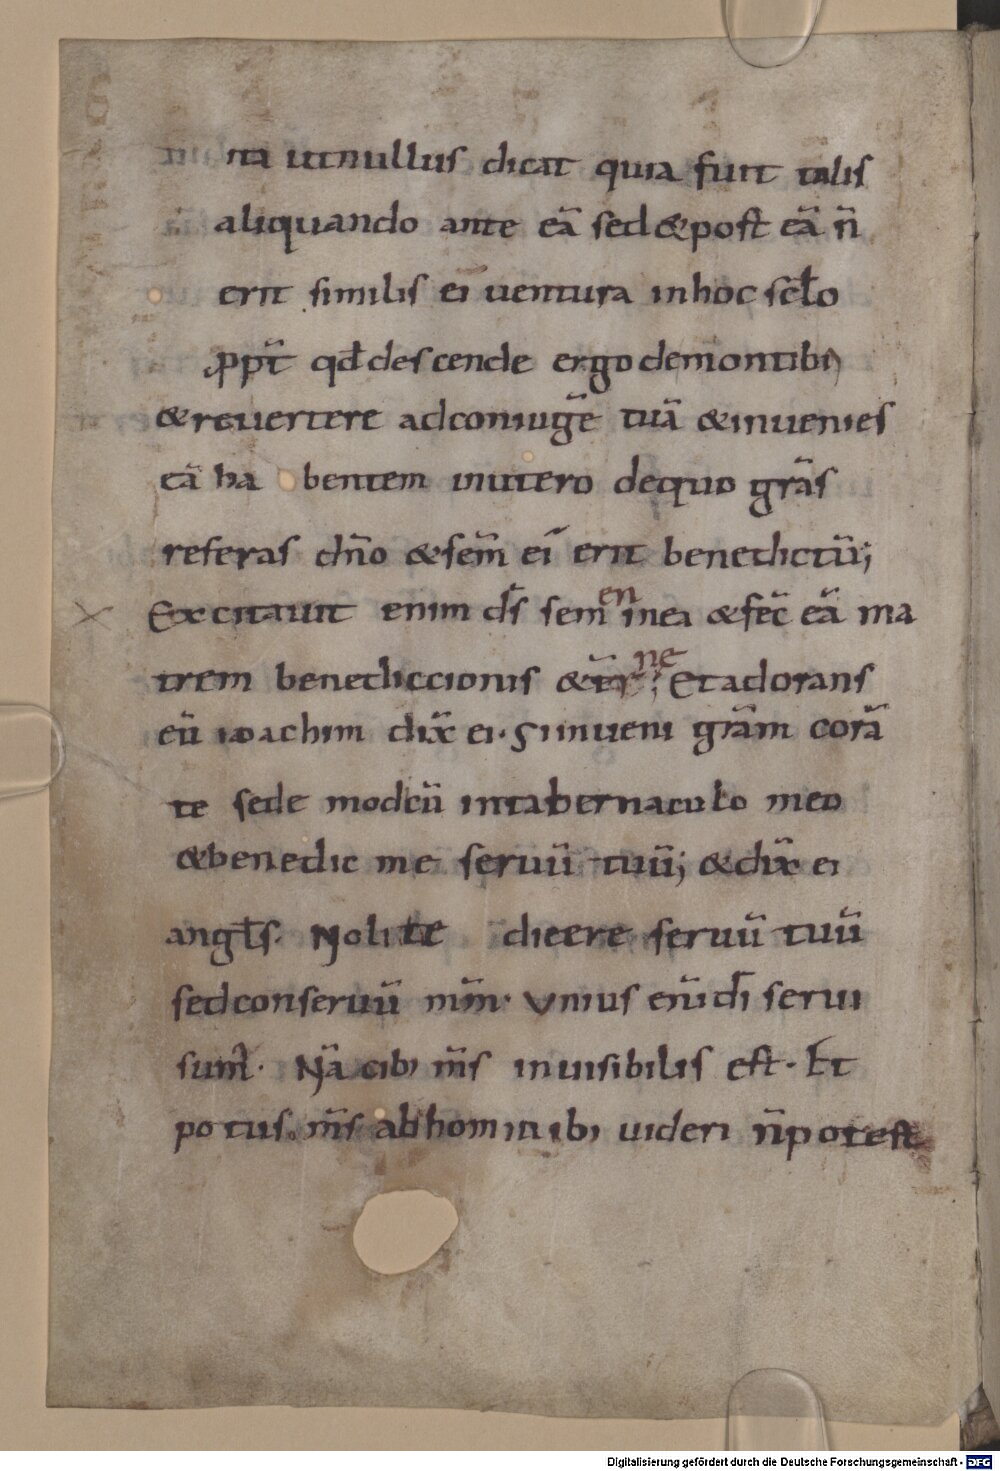 na utnullus dicat quia fuit talis
aliquando ante eā sed &post eā n̄
erit similis ei ventura inhoc scl̄o
ꝓpt̄ qd̄ descende ergo demontibꝰ
&revertere adconiugē tuā &invenies
eā ha bentem inutero dequo grās
referas dn̄o &sem̄ ei erit benedictū;
Excitavit enim ds̄ semen inea &fec̄ eā ma
trem benediccionis &er̄ne; Etadorans
eū ioachim dix̄ ei. Siinveni grām corā
te sede modcū intabernaculo meo
&benedic me servū tuū; &dix̄ ei
angl̄s. Nolite dicere servū tuū
sedconservū nr̄m. Unius eni̅ dī servi
sum̄. Nā cibꝰ m̄s invisibilis est. Et
potus m̄s abhominibꝰ videri n̄potest
Digitalisierung gefördert durch die Deutsche Forschungsgemeinschaft - DFG